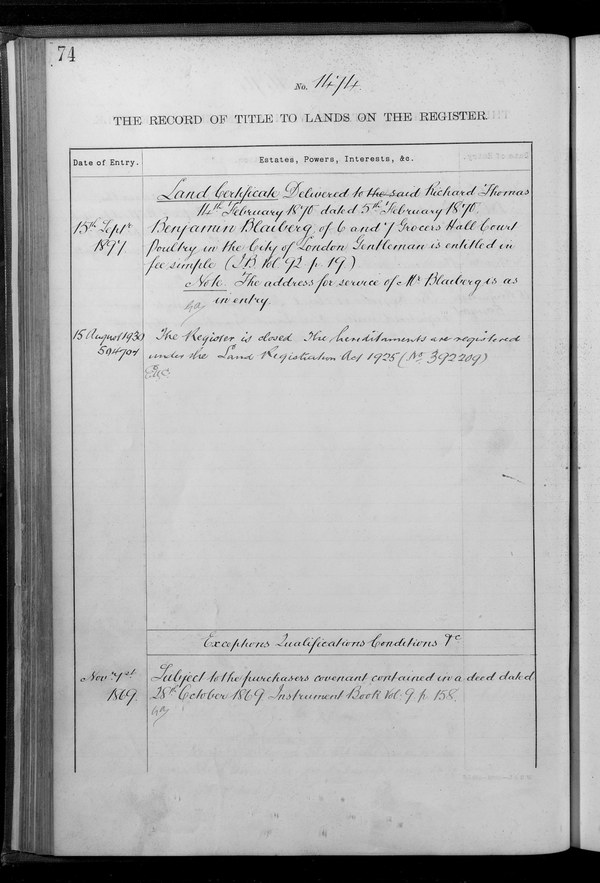 74
No. 1474.
THE RECORD OF TITLE TO LANDS ON THE REGISTER.
Date of Entry.
Estates, Powers, Interests, &c.
Land Certificate Delivered to the said Richard Thomas
14th February 1870 dated 5th February 1870.
15th Septr
1897
Benjamin Blaiberg of 6 and 7 Grocers Hall Court
Poultry in the City of London Gentleman is entitled in
fee simple (I.B. Vol. 92 p 19)
Note The address for service of Mr Blaiberg is as
in entry.
15 August 1930
594704
The Register is closed The hereditaments are registered
under the Land Registration Act 1925 (No. 392209)
Exceptions Qualifications Conditions &c
Nov
1869
Subject to the purchasers covenant contained in a deed dated
28th October 1869 Instrument Book Vol. 9 p. 158.